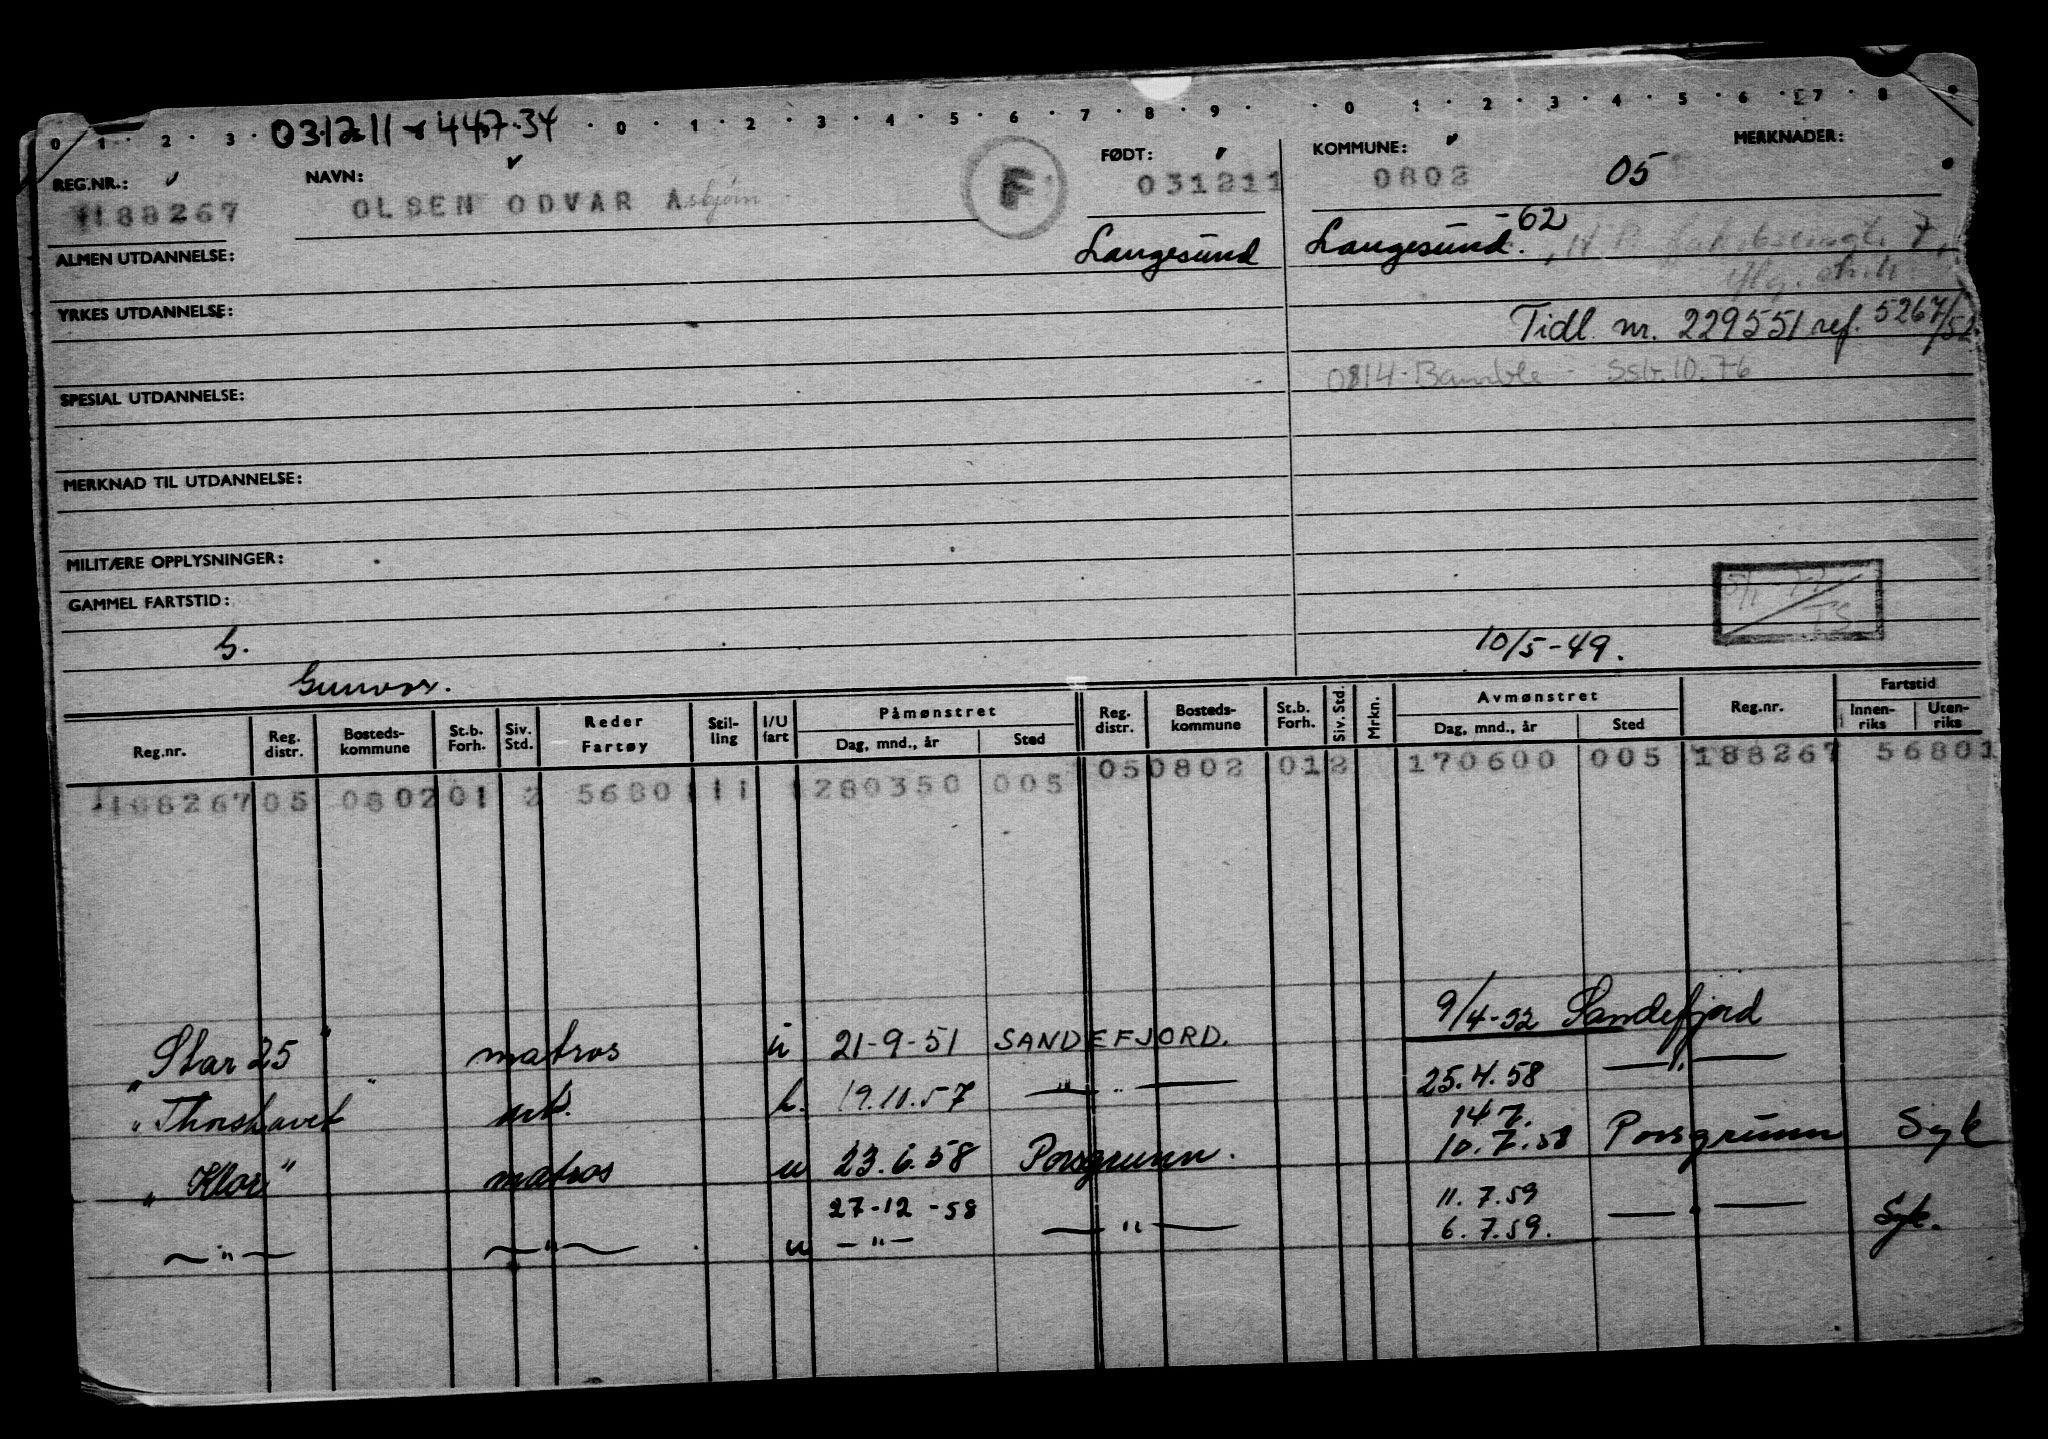 031211 447.34
0 1 2 3 0 1 2 3 4 5 6 7 8 9 0 1 2 3 4 5 6 7 8 9
REG.NR.: NAVN: F FØDT: KOMMUNE: MERKNADER:
188267 OLSEN ODVAR Asbjørn 031211 0802 05
ALMEN UTDANNELSE: Langesund Langesund. -62
YRKES UTDANNELSE: Tidl. nr. 229551 ref. 5267/52.
0814 - Bamble - Sstr. 10.76
SPESIAL UTDANNELSE:
MERKNAD TIL UTDANNELSE:
MILITÆRE OPPLYSNINGER:
GAMMEL FARTSTID:
G. 10/5-49.
Gunvor.
Reg.nr. Reg. distr. Bosteds-kommune St.b. Forh. Siv. Std. Reder Fartøy Stil-ling I/U fart Påmønstret Dag, mnd., år Sted Reg. distr. Bosteds-kommune St.b. Forh. Siv. Std. Mrkn. Avmønstret Dag, mnd., år Sted Reg.nr. Fartstid Innen-riks Uten-riks
188267 05 0802 01 2 5680 11 1 280350 005 05 0802 01 2 170600 005 188267 56801
"Star 25" matros u 21-9-51 SANDEFJORD. 9/4-52 Sandefjord
"Thorshavet" h. 19.11.57 — " — 25.4.58 — " —
14 7.
"Klor" matros u 23.6.58 Porsgrunn. 10.7.58 Porsgrunn Syk
27-12-58 11.7.59
— " — — " — u — " — — " — 6.7.59. — " — Syk.